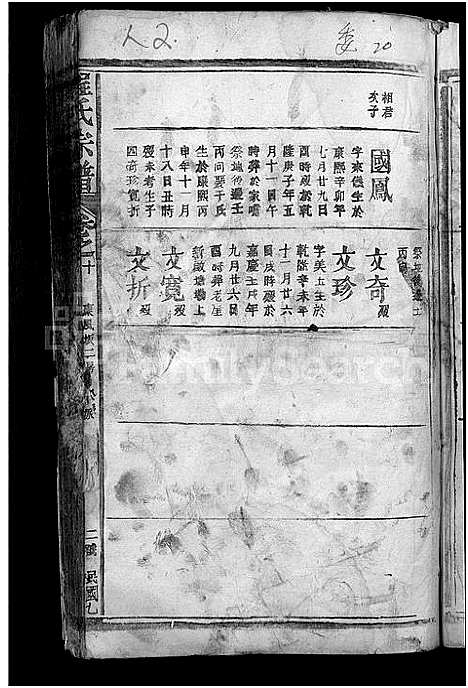 人2
委 20
相君
次子
國鳳
字來儀生於
康熙辛卯年
七月廿九日
酉時歿於乾
隆庚子年五
月十一日午
時葬於家嘴
祭地後邊壬
丙向娶于氏
生於康熙丙
申年十一月
十八日丑時
歿未考生子
四奇珍寬折
丙向
文奇 歿
文珍
字美五生於
乾隆辛未年
十一月廿六
日戌時歿於
嘉慶壬戌年
九月廿六日
酉時葬老屋
新啟塘墈上
文寬 歿
文折 歿
氏宗譜
卷之十
二號
民國九
FamilySearch